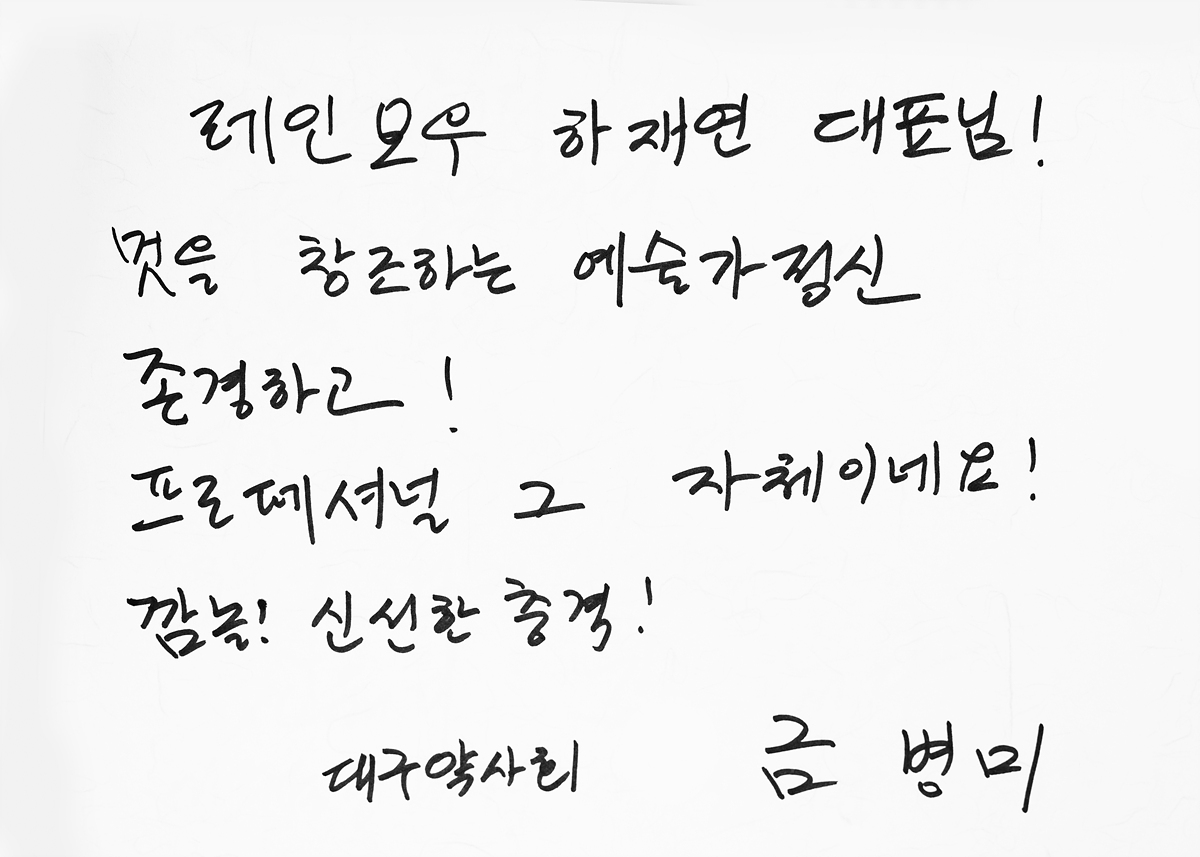 레인보우 하재연 대표님!
멋을 창조하는 예술가정신
존경하고!
프로페셔널 그 자체이네요!
깜놀! 신선한 충격!
대구약사회 금병미